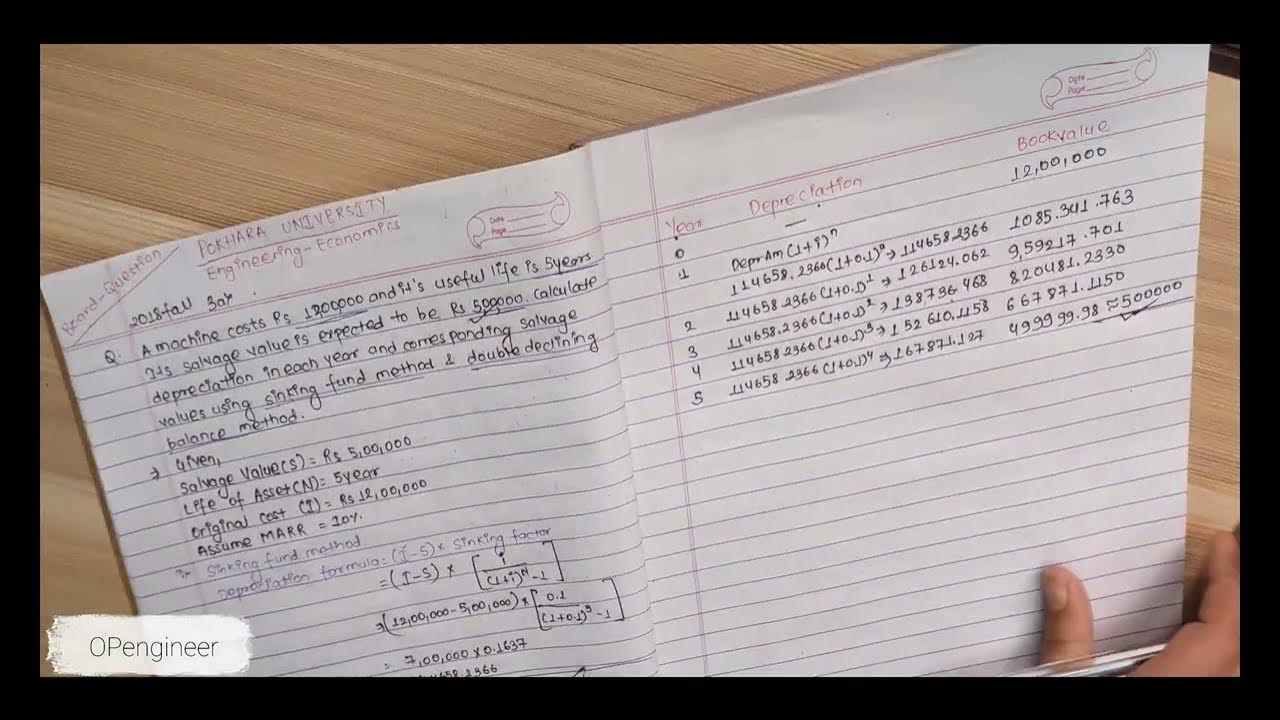 Board-Question
POKHARA UNIVERSITY
Engineering-Economics
Date
Page
2018fall 3a)
Q. A machine costs Rs 1200000 and it's useful life is 5years
Its salvage value is expected to be Rs 500000. Calculate
depreciation in each year and corresponding salvage
values using sinking fund method & double declining
balance method.
→ Given,
Salvage Value(s) = Rs 5,00,000
Life of Asset(N)= 5year
Original cost (I) = Rs 12,00,000
Assume MARR = 10%.
Sinking fund method
Depreciation formula = (I-S) * sinking factor
= (I-S) * [ i / (1+i)^N -1 ]
→ (12,00,000-5,00,000) * [ 0.1 / (1+0.1)^5 -1 ]
= 7,00,000 x 0.1637
Date
Page
Year Depreciation Bookvalue
0 — 12,00,000
1 Depr Am (1+i)^n
114658.2366(1+0.1)^0 → 114658.2366 1085.341.763
2 114658.2366(1+0.1)^1 → 126124.062 9,59217.701
3 114658.2366(1+0.1)^2 → 138736.468 820481.2330
4 114658.2366(1+0.1)^3 → 152610.1158 667871.1150
5 114658.2366(1+0.1)^4 → 167871.127 499999.98 ≈ 500000
OPengineer